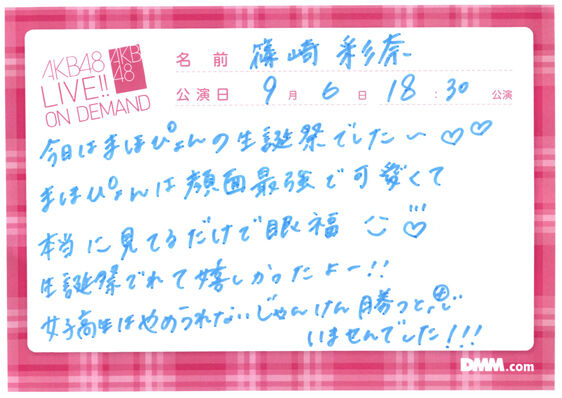 AKB48
LIVE!!
ON DEMAND
AKB
48
名前 篠崎 彩奈
公演日 9月 6日 18:30 公演
今日はまほぴょんの生誕祭でした〜♡♡
まほぴょんは顔面最強で可愛くて
本当に見てるだけで眼福 ♡
生誕祭でれて嬉しかったよー!!
女子高生はやめられないじゃんけん勝つと思
いませんでした!!!
DMM.com